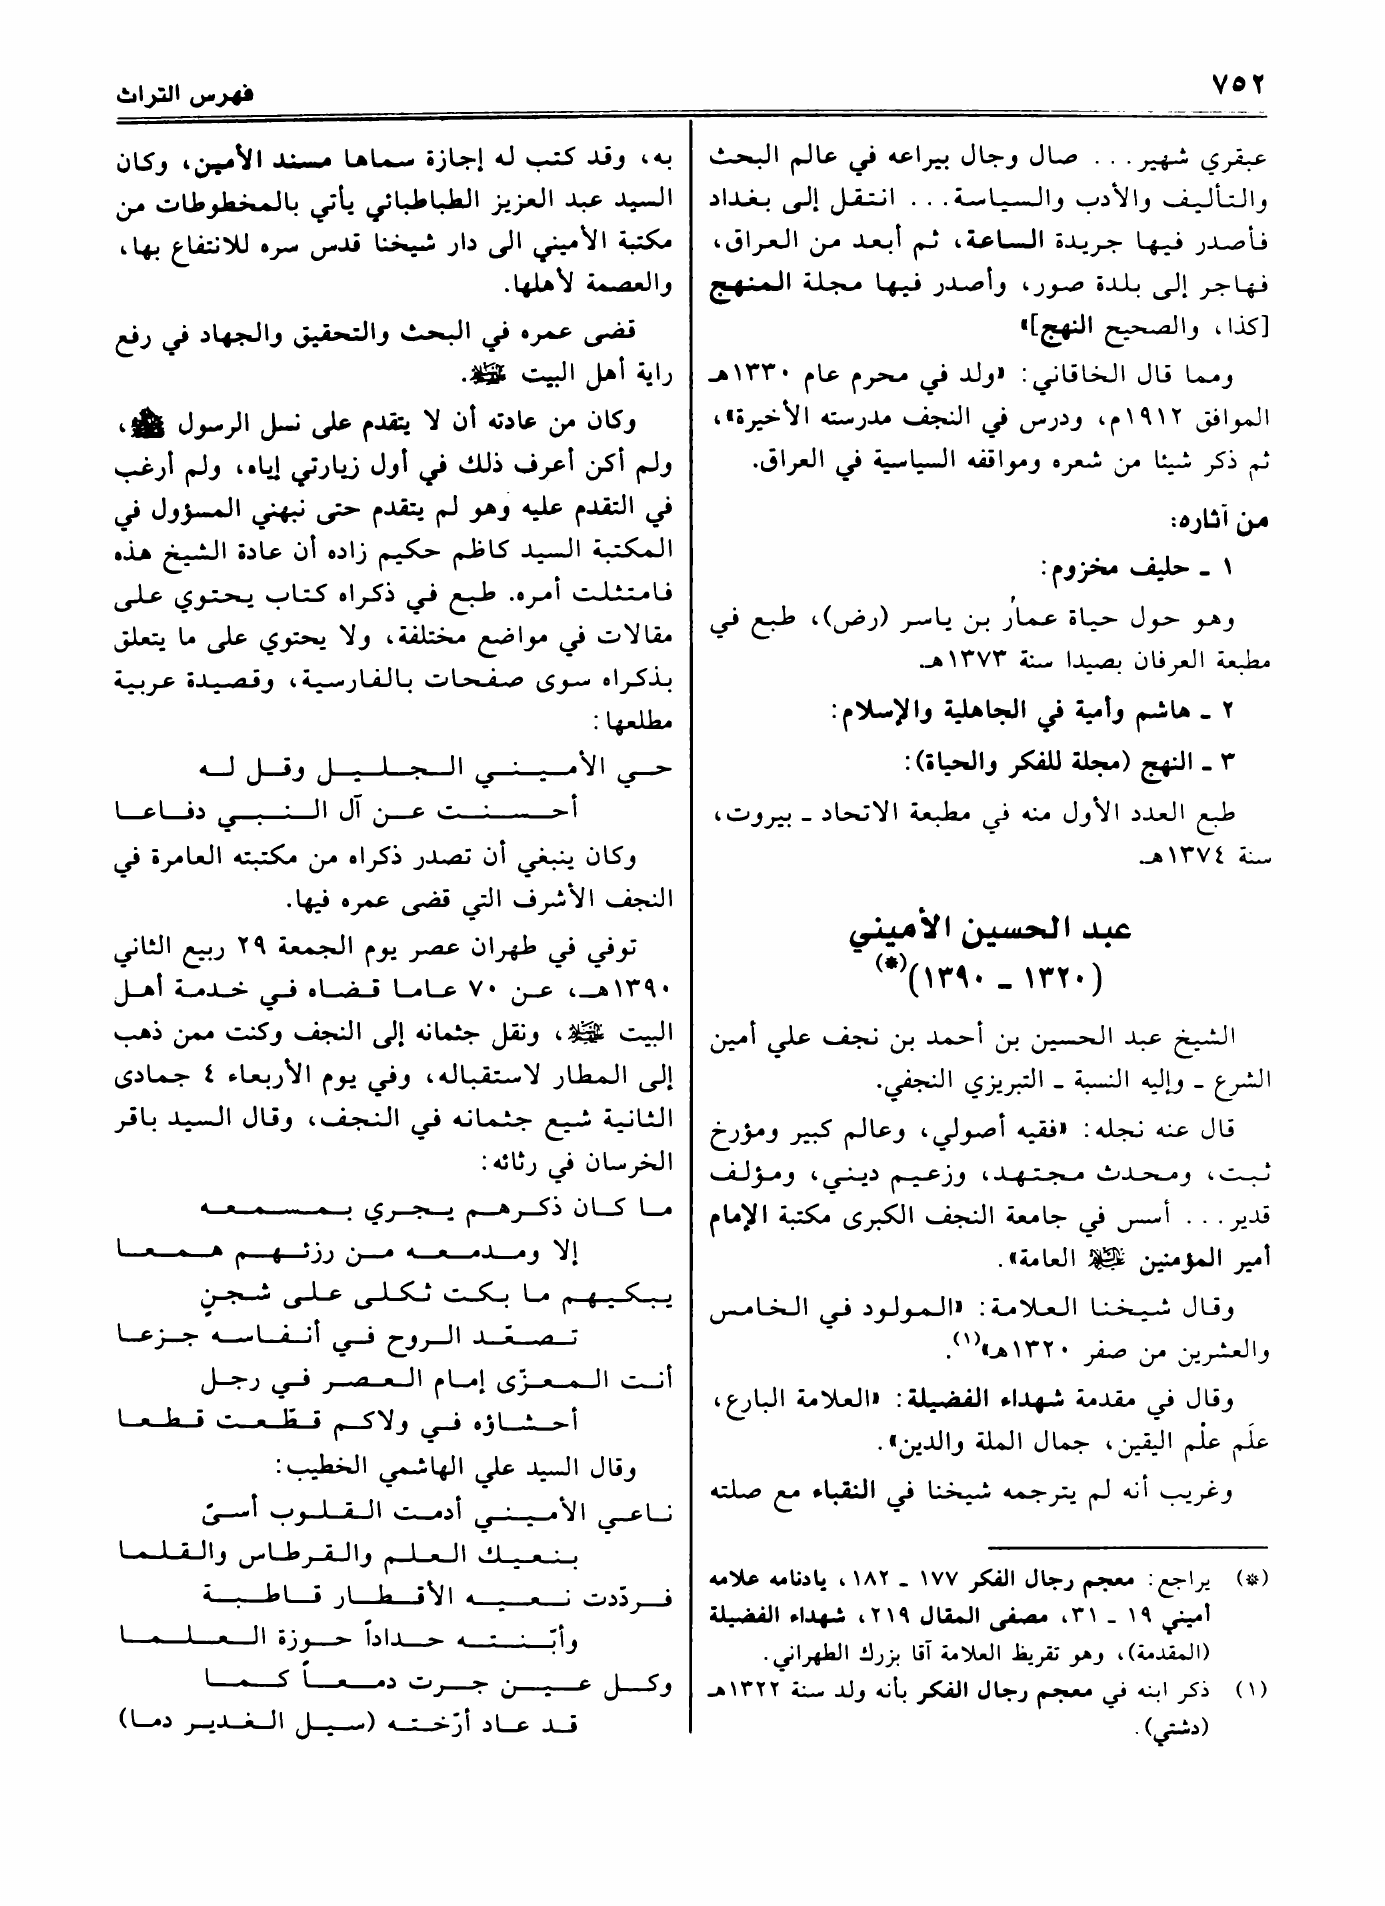 ٧٥٢
فهرس التراث
عبقري شهير... صال وجال بيراعه في عالم البحث
والتأليف والأدب والسياسة... انتقل إلى بغداد
فأصدر فيها جريدة الساعة، ثم أبعد من العراق،
فهاجر إلى بلدة صور، وأصدر فيها مجلة المنهج
[كذا، والصحيح النهج]»
ومما قال الخاقاني: «ولد في محرم عام ١٣٣٠هـ
الموافق ١٩١٢م، ودرس في النجف مدرسته الأخيرة»،
ثم ذكر شيئا من شعره ومواقفه السياسية في العراق.
من آثاره:
١ ـ حليف مخزوم:
وهو حول حياة عمار بن ياسر (رض)، طبع في
مطبعة العرفان بصيدا سنة ١٣٧٣هـ.
٢ ـ هاشم وأمية في الجاهلية والإسلام:
٣ ـ النهج (مجلة للفكر والحياة):
طبع العدد الأول منه في مطبعة الاتحاد ـ بيروت،
سنة ١٣٧٤هـ.
عبد الحسين الأميني
(١٣٢٠ ـ ١٣٩٠)(*)
الشيخ عبد الحسين بن أحمد بن نجف علي أمين
الشرع ـ وإليه النسبة ـ التبريزي النجفي.
قال عنه نجله: «فقيه أصولي، وعالم كبير ومؤرخ
ثبت، ومحدث مجتهد، وزعيم ديني، ومؤلف
قدير... أسس في جامعة النجف الكبرى مكتبة الإمام
أمير المؤمنين عليه السلام العامة».
وقال شيخنا العلامة: «المولود في الخامس
والعشرين من صفر ١٣٢٠هـ»(١).
وقال في مقدمة شهداء الفضيلة: «العلامة البارع،
علَم علْم اليقين، جمال الملة والدين».
وغريب أنه لم يترجمه شيخنا في النقباء مع صلته
(*) يراجع: معجم رجال الفكر ١٧٧ ـ ١٨٢، يادنامه علامه
أميني ١٩ ـ ٣١، مصفى المقال ٢١٩، شهداء الفضيلة
(المقدمة)، وهو تقريظ العلامة آقا بزرك الطهراني.
(١) ذكر ابنه في معجم رجال الفكر بأنه ولد سنة ١٣٢٢هـ
(دشتي).
به، وقد كتب له إجازة سماها مسند الأمين، وكان
السيد عبد العزيز الطباطبائي يأتي بالمخطوطات من
مكتبة الأميني الى دار شيخنا قدس سره للانتفاع بها،
والعصمة لأهلها.
قضى عمره في البحث والتحقيق والجهاد في رفع
راية أهل البيت.
وكان من عادته أن لا يتقدم على نسل الرسول،
ولم أكن أعرف ذلك في أول زيارتي إياه، ولم أرغب
في التقدم عليه وهو لم يتقدم حتى نبهني المسؤول في
المكتبة السيد كاظم حكيم زاده أن عادة الشيخ هذه
فامتثلت أمره. طبع في ذكراه كتاب يحتوي على
مقالات في مواضع مختلفة، ولا يحتوي على ما يتعلق
بذكراه سوى صفحات بالفارسية، وقصيدة عربية
مطلعها:
حي الأميني الجليل وقل له
أحسنت عن آل النبي دفاعا
وكان ينبغي أن تصدر ذكراه من مكتبته العامرة في
النجف الأشرف التي قضى عمره فيها.
توفي في طهران عصر يوم الجمعة ٢٩ ربيع الثاني
١٣٩٠هـ، عن ٧٠ عاما قضاه في خدمة أهل
البيت، ونقل جثمانه إلى النجف وكنت ممن ذهب
إلى المطار لاستقباله، وفي يوم الأربعاء ٤ جمادى
الثانية شيع جثمانه في النجف، وقال السيد باقر
الخرسان في رثائه:
ما كان ذكرهم يجري بمسمعه
إلا ومدمعه من رزئهم همعا
يبكيهم ما بكت ثكلى على شجنٍ
تصعّد الروح في أنفاسه جزعا
أنت المعزّى إمام العصر في رجل
أحشاؤه في ولاكم قطّعت قطعا
وقال السيد علي الهاشمي الخطيب:
ناعي الأميني أدمت القلوب أسىً
بنعيك العلم والقرطاس والقلما
فردّدت نعيه الأقطار قاطبة
وأبّنته حداداً حوزة العلما
وكل عين جرت دمعاً كما
قد عاد أرّخته (سيل الغدير دما)